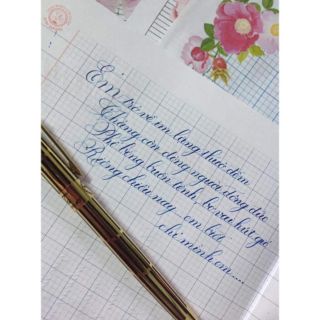 Em trở về im lặng thuở đêm
Chẳng còn dòng người đông đúc
Phố bỗng buồn tênh, bờ vai hút gió
Riêng chiều nay - em biết
chỉ mình em....